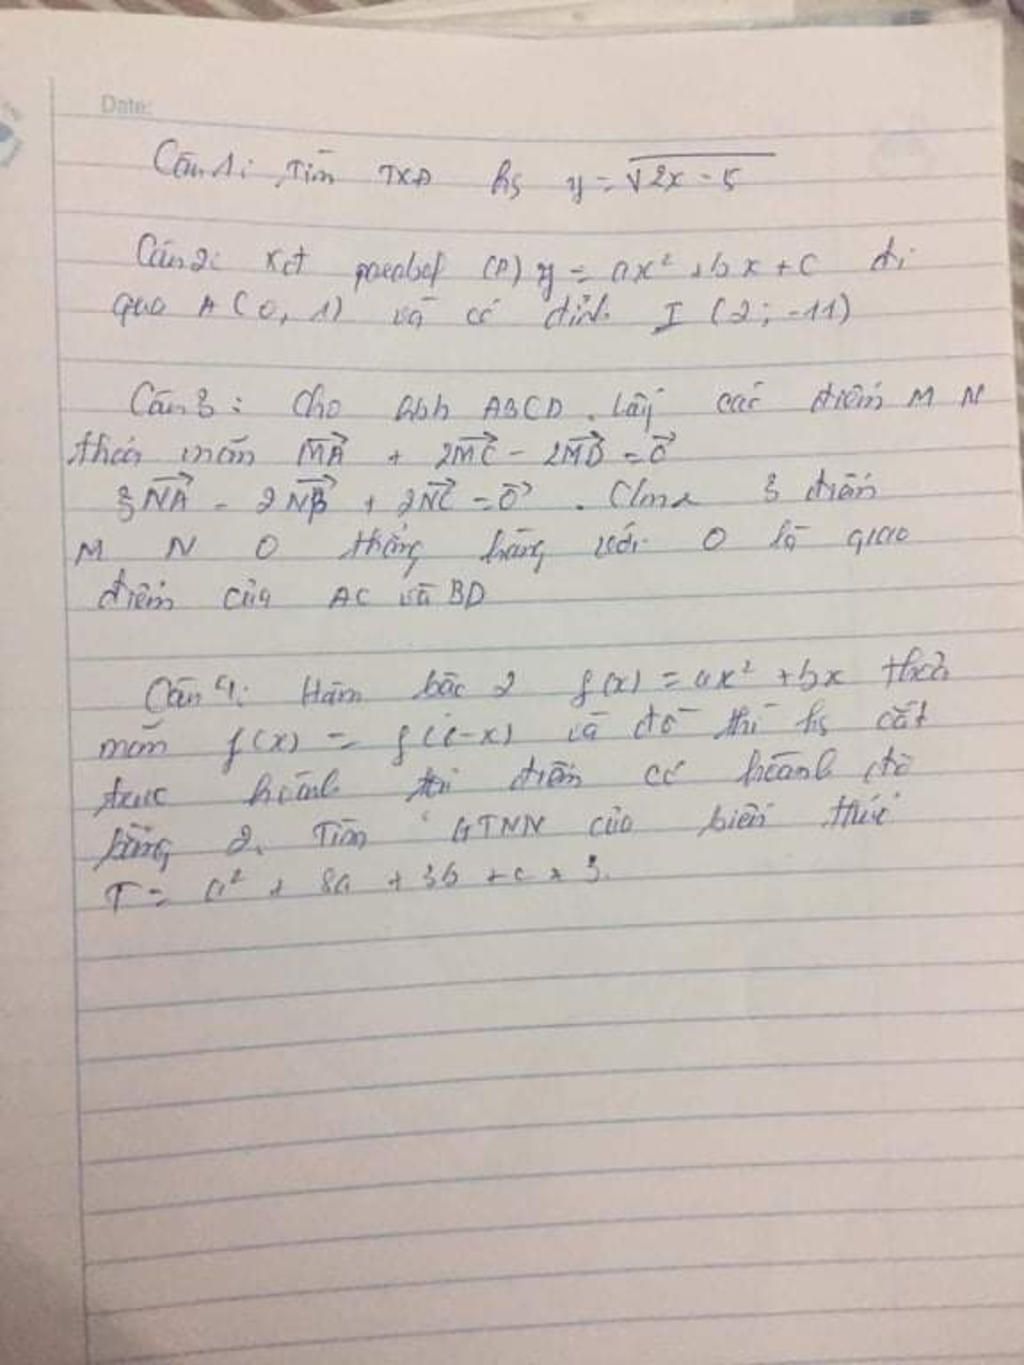 Date:
Câu 1: Tìm TXĐ hs y = √2x - 5
Câu 2: xđ parabol (P) y = ax² + bx + c đi
qua A (0, 1) và có đỉnh I (2; -11)
Câu 3: Cho hbh ABCD. Lấy các điểm M N
thỏa mãn MA + 2MC - 2MD = 0
3NA - 2NB + 2NC = 0. Cm 3 điểm
M N O thẳng hàng với O là giao
điểm của AC và BD
Câu 4: Hàm bậc 2 f(x) = ax² + bx thỏa
mãn f(x) = f(-x) và đồ thị hs cắt
trục hoành tại điểm có hoành độ
bằng 2. Tìm GTNN của biến thức
T = a² + 8a + 3b + c + 3.